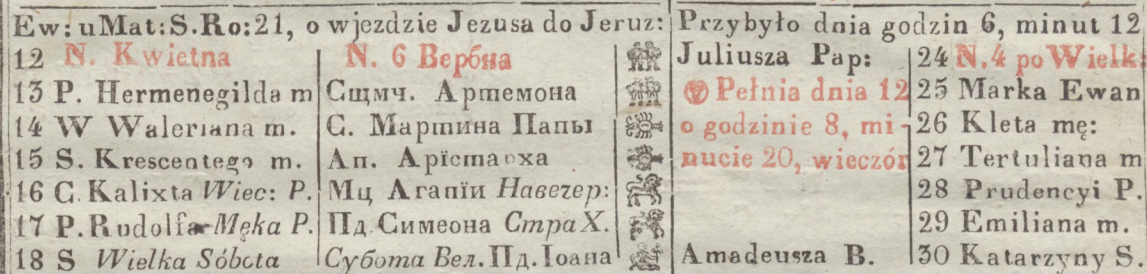 Ew: u Mat: S. Ro: 21, o wjezdzie Jezusa do Jeruz: Przybyło dnia godzin 6, minut 12
12 N. Kwietna N. 6 Вербна Juliusza Pap: 24 N. 4 po Wielk:
13 P. Hermenegilda m Сщмч. Артемона Pełnia dnia 12 25 Marka Ewan
14 W Waleriana m. С. Мартина Папы o godzinie 8, mi- 26 Kleta mę:
15 S. Krescentego m. Ап. Арїстарха nucie 20, wieczór 27 Tertuliana m
16 C. Kalixta Wiec: P. Мц Агапїи Навечер: 28 Prudencyi P.
17 P. Rudolfa Męka P. Пд Симеона Стра Х. 29 Emiliana m.
18 S Wielka Sóbota Субота Вел. Пд. Іоана Amadeusza B. 30 Katarzyny S